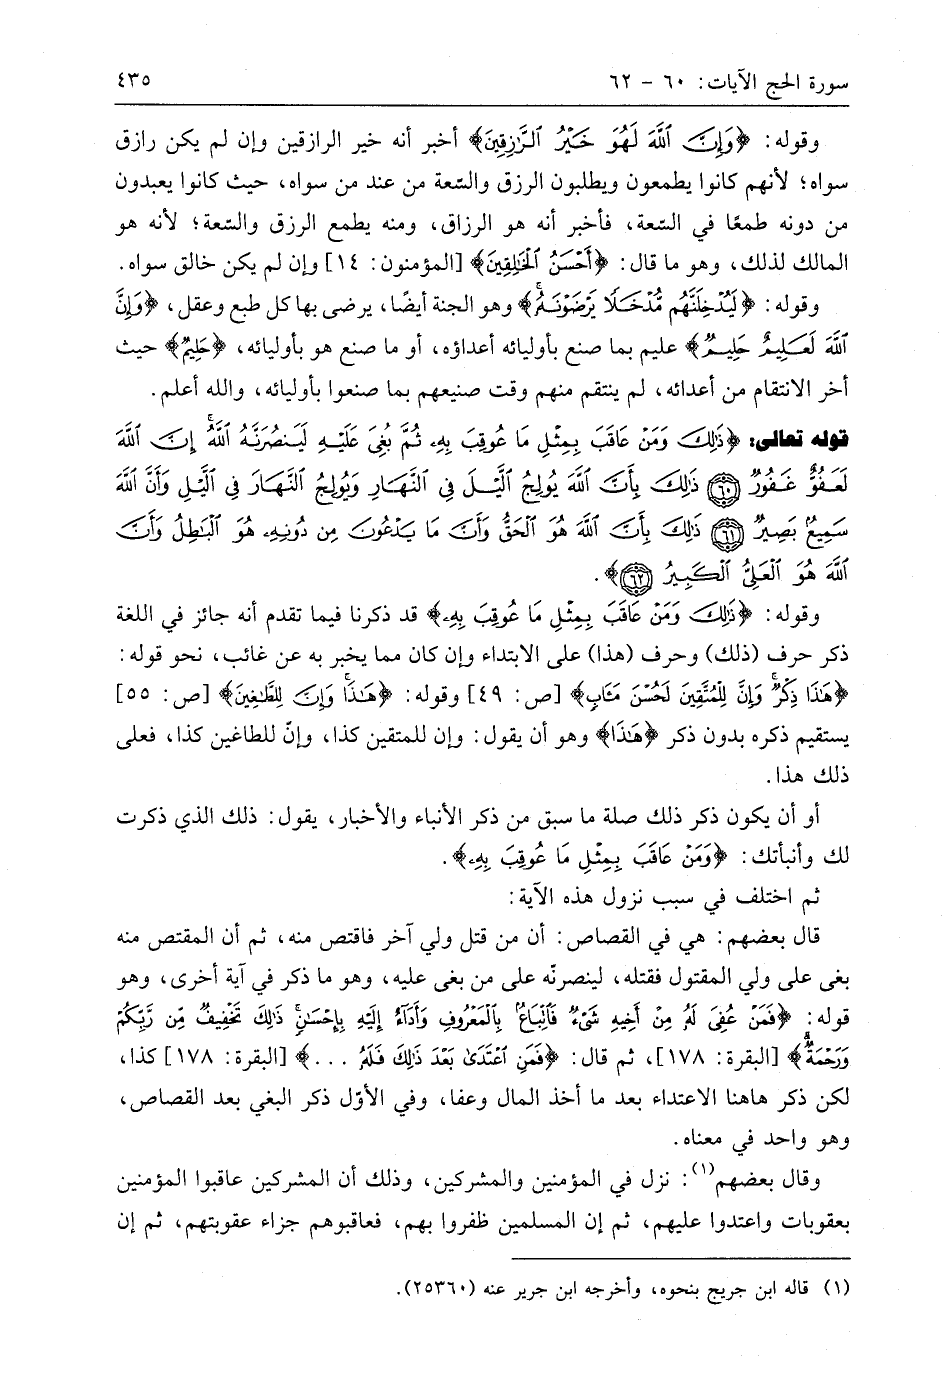 سورة الحج الآيات: ٦٠ - ٦٢ ٤٣٥
وقوله: ﴿وَإِنَّ ٱللَّهَ لَهُوَ خَيْرُ ٱلرَّٰزِقِينَ﴾ أخبر أنه خير الرازقين وإن لم يكن رازق
سواه؛ لأنهم كانوا يطمعون ويطلبون الرزق والسّعة من عند من سواه، حيث كانوا يعبدون
من دونه طمعًا في السّعة، فأخبر أنه هو الرزاق، ومنه يطمع الرزق والسّعة؛ لأنه هو
المالك لذلك، وهو ما قال: ﴿أَحْسَنُ ٱلْخَٰلِقِينَ﴾ [المؤمنون: ١٤] وإن لم يكن خالق سواه.
وقوله: ﴿لَيُدْخِلَنَّهُم مُّدْخَلًا يَرْضَوْنَهُۥ﴾ وهو الجنة أيضًا، يرضى بها كل طبع وعقل، ﴿وَإِنَّ
ٱللَّهَ لَعَلِيمٌ حَلِيمٌ﴾ عليم بما صنع بأوليائه أعداؤه، أو ما صنع هو بأوليائه، ﴿حَلِيمٌ﴾ حيث
أخر الانتقام من أعدائه، لم ينتقم منهم وقت صنيعهم بما صنعوا بأوليائه، والله أعلم.
قوله تعالى: ﴿ذَٰلِكَ وَمَنْ عَاقَبَ بِمِثْلِ مَا عُوقِبَ بِهِۦ ثُمَّ بُغِىَ عَلَيْهِ لَيَنصُرَنَّهُ ٱللَّهُ إِنَّ ٱللَّهَ
لَعَفُوٌّ غَفُورٌ ٦٠ ذَٰلِكَ بِأَنَّ ٱللَّهَ يُولِجُ ٱلَّيْلَ فِى ٱلنَّهَارِ وَيُولِجُ ٱلنَّهَارَ فِى ٱلَّيْلِ وَأَنَّ ٱللَّهَ
سَمِيعٌۢ بَصِيرٌ ٦١ ذَٰلِكَ بِأَنَّ ٱللَّهَ هُوَ ٱلْحَقُّ وَأَنَّ مَا يَدْعُونَ مِن دُونِهِۦ هُوَ ٱلْبَٰطِلُ وَأَنَّ
ٱللَّهَ هُوَ ٱلْعَلِىُّ ٱلْكَبِيرُ ٦٢﴾.
وقوله: ﴿ذَٰلِكَ وَمَنْ عَاقَبَ بِمِثْلِ مَا عُوقِبَ بِهِۦ﴾ قد ذكرنا فيما تقدم أنه جائز في اللغة
ذكر حرف (ذلك) وحرف (هذا) على الابتداء وإن كان مما يخبر به عن غائب، نحو قوله:
﴿هَٰذَا ذِكْرٌ وَإِنَّ لِلْمُتَّقِينَ لَحُسْنَ مَـَٔابٍ﴾ [ص: ٤٩] وقوله: ﴿هَٰذَا وَإِنَّ لِلطَّٰغِينَ﴾ [ص: ٥٥]
يستقيم ذكره بدون ذكر ﴿هَٰذَا﴾ وهو أن يقول: وإن للمتقين كذا، وإنّ للطاغين كذا، فعلى
ذلك هذا.
أو أن يكون ذكر ذلك صلة ما سبق من ذكر الأنباء والأخبار، يقول: ذلك الذي ذكرت
لك وأنبأتك: ﴿وَمَنْ عَاقَبَ بِمِثْلِ مَا عُوقِبَ بِهِۦ﴾.
ثم اختلف في سبب نزول هذه الآية:
قال بعضهم: هي في القصاص: أن من قتل ولي آخر فاقتص منه، ثم أن المقتص منه
بغى على ولي المقتول فقتله، لينصرنّه على من بغى عليه، وهو ما ذكر في آية أخرى، وهو
قوله: ﴿فَمَنْ عُفِىَ لَهُۥ مِنْ أَخِيهِ شَىْءٌ فَٱتِّبَاعٌۢ بِٱلْمَعْرُوفِ وَأَدَآءٌ إِلَيْهِ بِإِحْسَٰنٍ ذَٰلِكَ تَخْفِيفٌ مِّن رَّبِّكُمْ
وَرَحْمَةٌ﴾ [البقرة: ١٧٨]، ثم قال: ﴿فَمَنِ ٱعْتَدَىٰ بَعْدَ ذَٰلِكَ فَلَهُۥ ...﴾ [البقرة: ١٧٨] كذا،
لكن ذكر هاهنا الاعتداء بعد ما أخذ المال وعفا، وفي الأوّل ذكر البغي بعد القصاص،
وهو واحد في معناه.
وقال بعضهم(١): نزل في المؤمنين والمشركين، وذلك أن المشركين عاقبوا المؤمنين
بعقوبات واعتدوا عليهم، ثم إن المسلمين ظفروا بهم، فعاقبوهم جزاء عقوبتهم، ثم إن
(١) قاله ابن جريج بنحوه، وأخرجه ابن جرير عنه (٢٥٣٦٠).